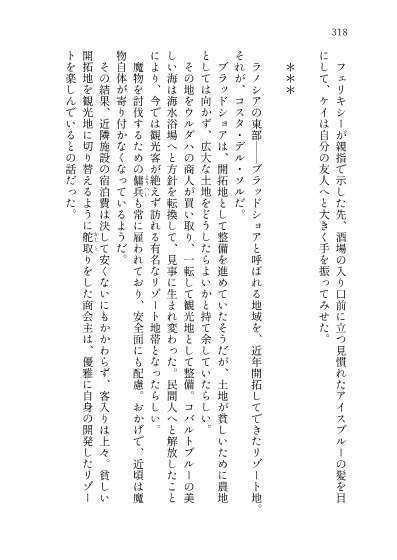 318
フェリキシーが親指で示した先、酒場の入り口前に立つ見慣れたアイスブルーの髪を目
にして、ケイは自分の友人へと大きく手を振ってみせた。
＊＊＊
ラノシアの東部――ブラッドショアと呼ばれる地域を、近年開拓してできたリゾート地。
それが、コスタ・デル・ソルだ。
ブラッドショアは、開拓地として整備を進めていたそうだが、土地が貧しいために農地
としては向かず、広大な土地をどうしたらよいかと持て余していたらしい。
その地をウルダハの商人が買い取り、一転して観光地として整備。コバルトブルーの美
しい海は海水浴場へと方針を転換して、見事に生まれ変わった。民間人へと解放したこと
により、今では観光客が絶えず訪れる有名なリゾート地帯となったらしい。
魔物を討伐するための傭兵も常に雇われており、安全面にも配慮。おかげで、近頃は魔
物自体が寄り付かなくなっているようだ。
その結果、近隣施設の宿泊費は決して安くないにもかかわらず、客入りは上々。貧しい
開拓地を観光地に切り替えるように舵取りをした商会主は、優雅に自身の開発したリゾー
トを楽しんでいるとの話だった。